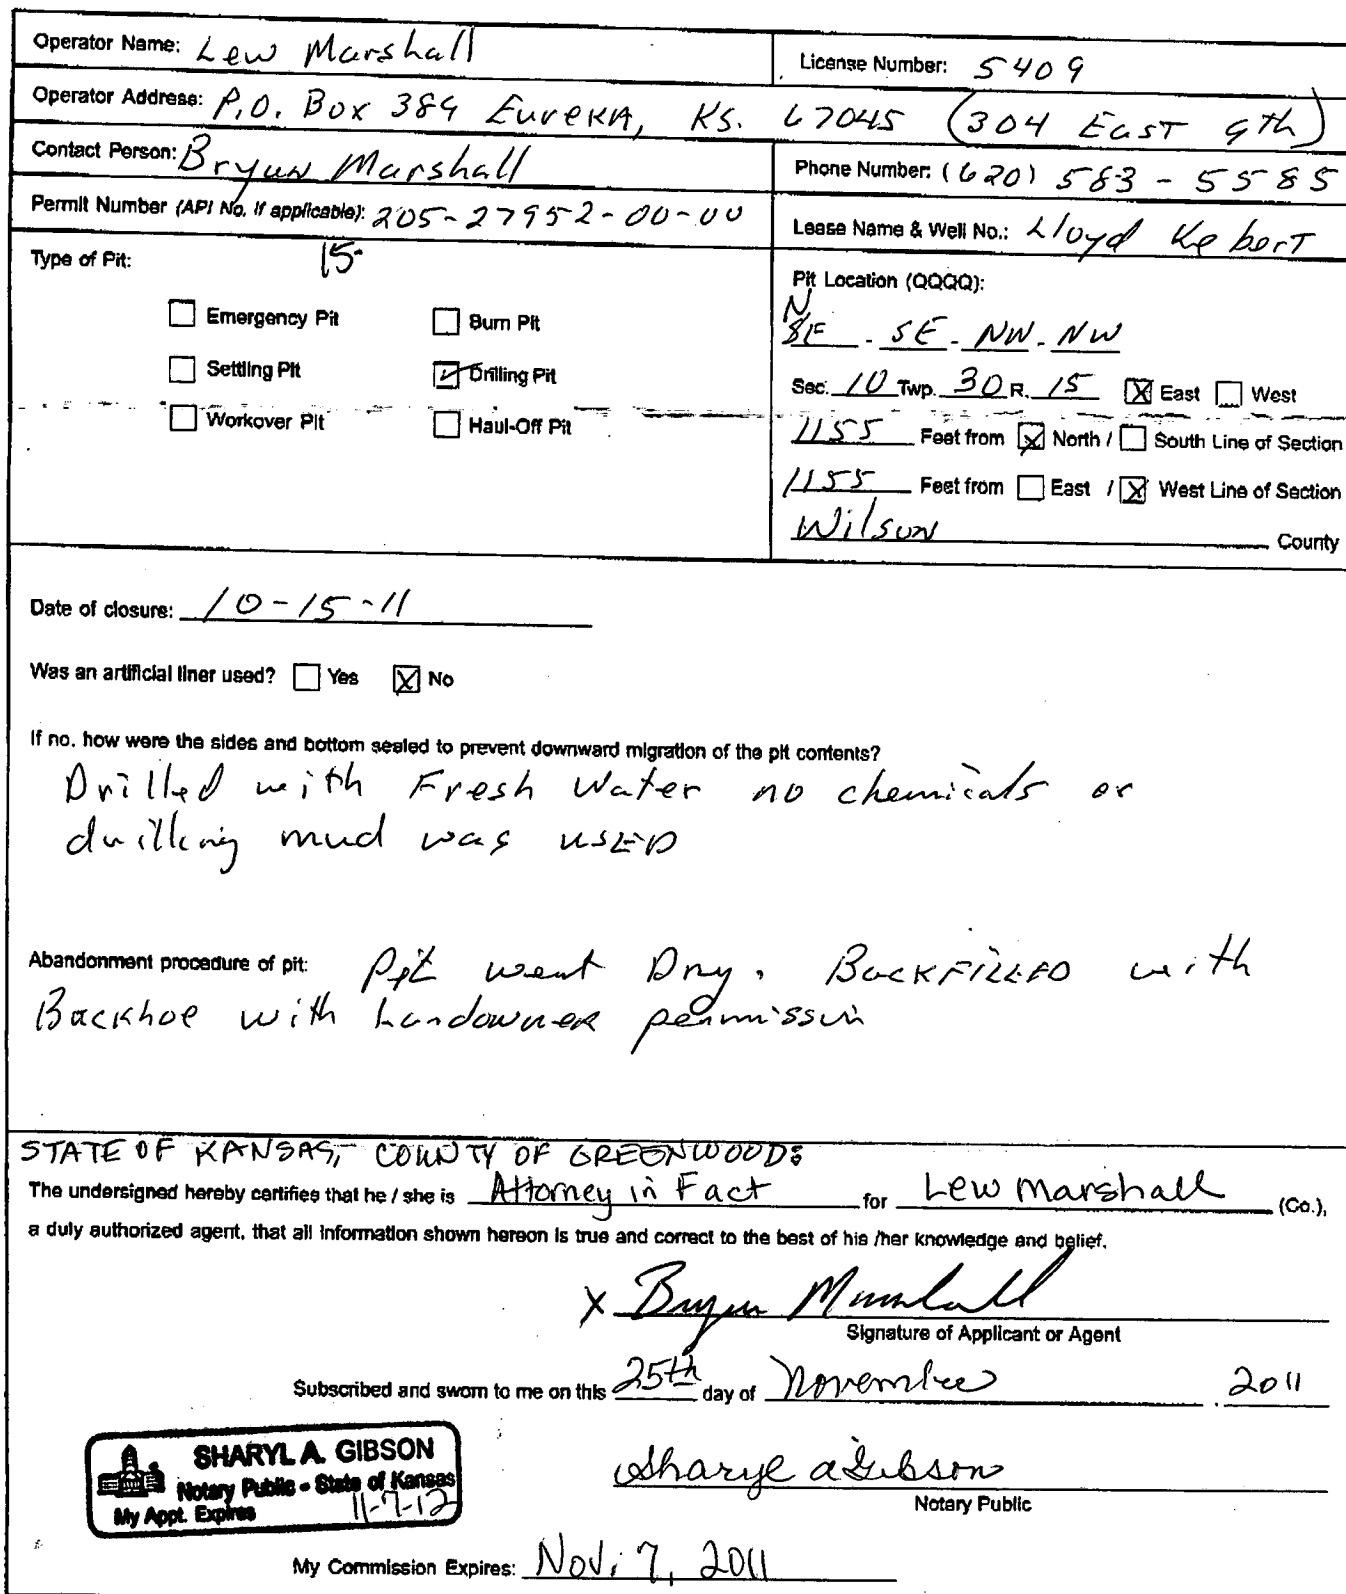 Operator Name: Lew Marshall
License Number: 5409
Operator Address: P.O. Box 384 Eureka, Ks. 67045 (304 East 9th)
Contact Person: Bryan Marshall
Phone Number: (620) 583-5585
Permit Number (API No. if applicable): 205-27952-00-00
15-
Lease Name & Well No.: Lloyd Kebert
Type of Pit:
Emergency Pit
Burn Pit
Settling Pit
Drilling Pit
Workover Pit
Haul-Off Pit
Pit Location (QQQQ):
N
SE - SE - NW - NW
Sec. 10 Twp. 30 R. 15 X East West
1155 Feet from X North / South Line of Section
1155 Feet from East / X West Line of Section
Wilson County
Date of closure: 10-15-11
Was an artificial liner used? Yes X No
If no, how were the sides and bottom sealed to prevent downward migration of the pit contents?
Drilled with Fresh Water no chemicals or
drilling mud was USED
Abandonment procedure of pit: Pit went Dry. BackFILLED with
Backhoe with Landowner permission
STATE OF KANSAS, COUNTY OF GREENWOOD:
The undersigned hereby certifies that he / she is Attorney in Fact for Lew Marshall (Co.),
a duly authorized agent, that all information shown hereon is true and correct to the best of his /her knowledge and belief.
X Bryan Marshall
Signature of Applicant or Agent
Subscribed and sworn to me on this 25th day of November . 2011
SHARYL A. GIBSON
Notary Public - State of Kansas
My Appt. Expires 11-7-12
Sharyl A Gibson
Notary Public
My Commission Expires: Nov. 7, 2011